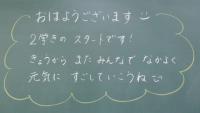 おはようございます
2学きの スタートです!
きょうから また みんなで なかよく
元気に すごしていこうね